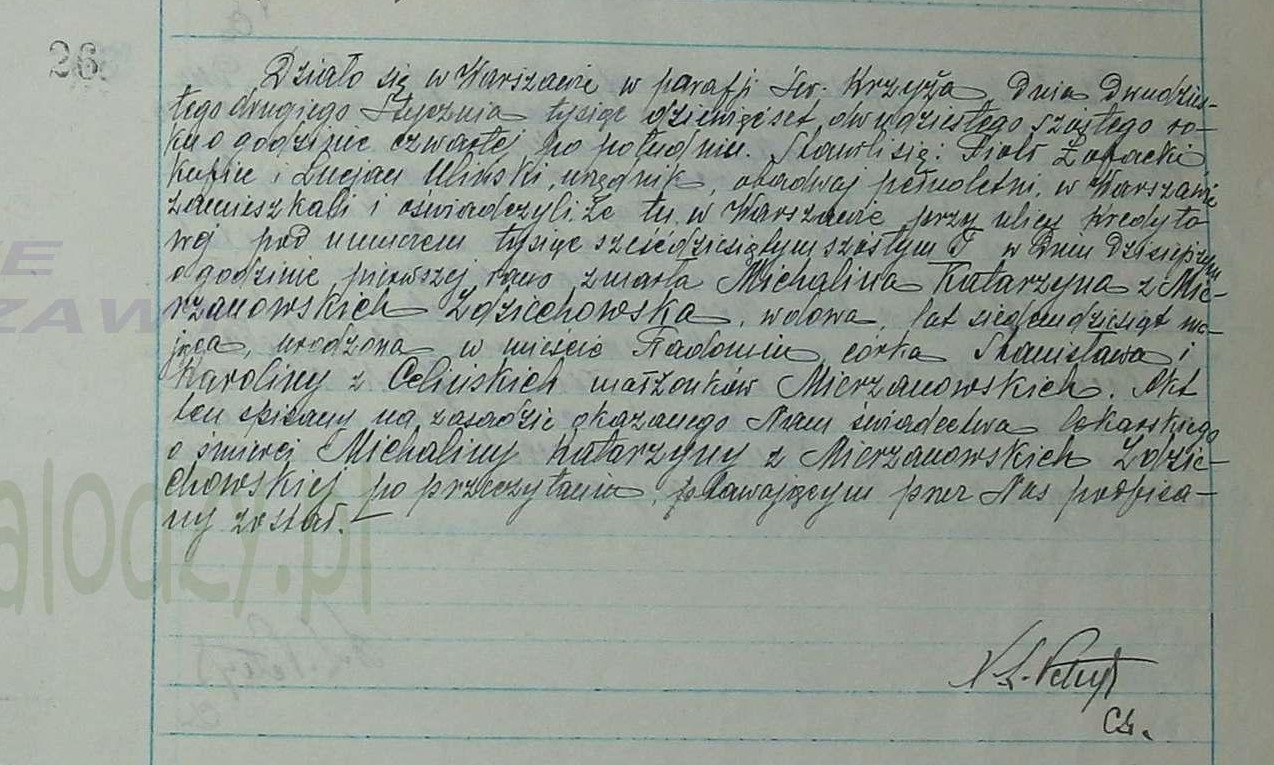 26
Działo się w Warszawie w parafji Św. Krzyża, dnia dwudzies-
tego drugiego Stycznia tysiąc dziewięćset dwudziestego szóstego ro-
ku o godzinie czwartej po południu. Stawili się: Piotr Łopacki
kupiec i Lucjan Uliński, urzędnik, obadwaj pełnoletni, w Warszawie
zamieszkali i oświadczyli, że tu w Warszawie przy ulicy Kredyto-
wej pod numerem tysiąc sześćdziesiątym szóstym F w dniu dzisiejszym
o godzinie pierwszej rano zmarła Michalina Katarzyna z Mie-
rzanowskich Zdziechowska, wdowa, lat siedemdziesiąt ma-
jąca, urodzona w mieście Radomiu, córka Stanisława i
Karoliny z Celińskich małżonków Mierzanowskich. Akt
ten spisany na zasadzie okazanego Nam świadectwa lekarskiego
o śmierci Michaliny Katarzyny z Mierzanowskich Zdzie-
chowskiej po przeczytaniu, stawającym przez Nas podpisa-
ny został.
IE
ZAWI
alodzy.pl